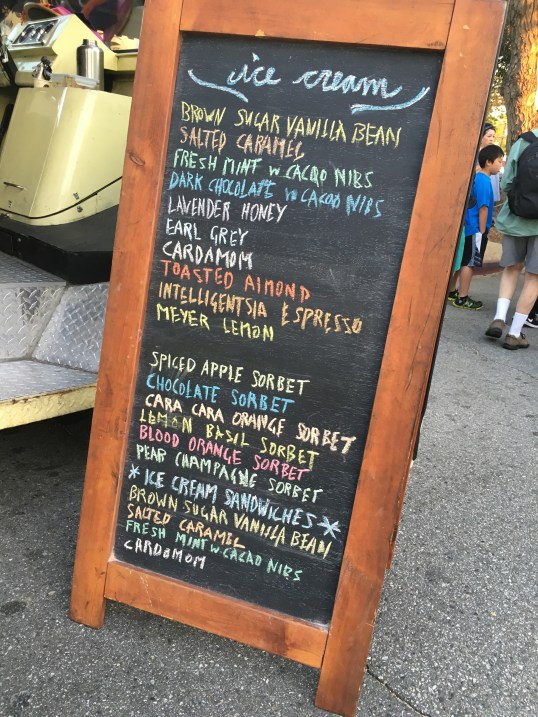 ice cream
BROWN SUGAR VANILLA BEAN
SALTED CARAMEL
FRESH MINT W CACAO NIBS
DARK CHOCOLATE W CACAO NIBS
LAVENDER HONEY
EARL GREY
CARDAMOM
TOASTED ALMOND
INTELLIGENTSIA ESPRESSO
MEYER LEMON
SPICED APPLE SORBET
CHOCOLATE SORBET
CARA CARA ORANGE SORBET
LEMON BASIL SORBET
BLOOD ORANGE SORBET
PEAR CHAMPAGNE SORBET
*ICE CREAM SANDWICHES*
BROWN SUGAR VANILLA BEAN
SALTED CARAMEL
FRESH MINT W CACAO NIBS
CARDAMOM